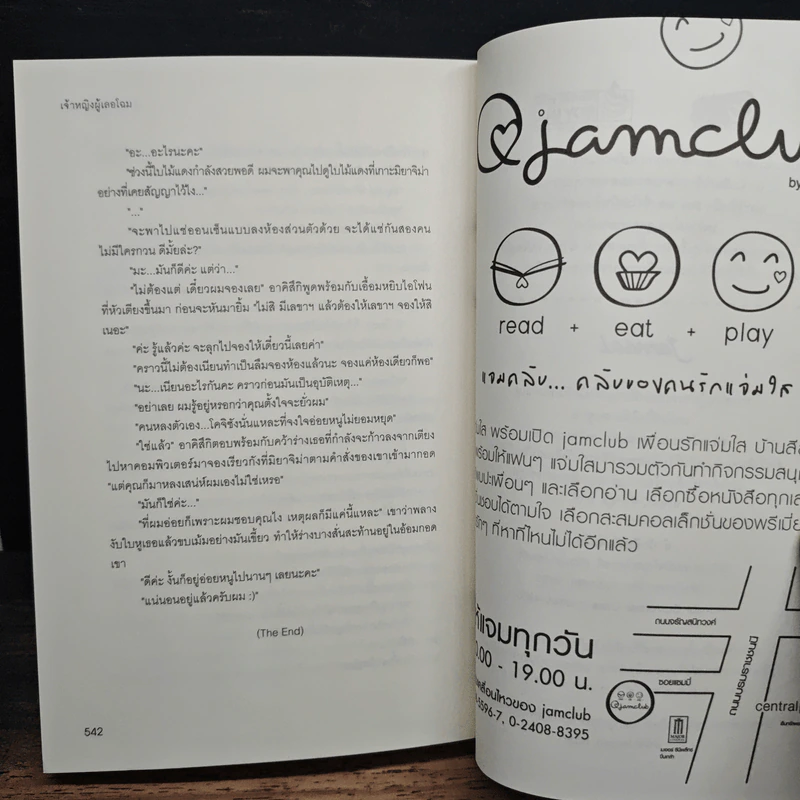 เจ้าหญิงผู้เลอโฉม
"อะ...อะไรนะคะ"
"ช่วงนี้ใบไม้แดงกำลังสวยพอดี ผมจะพาคุณไปดูใบไม้แดงที่เกาะมิยาจิม่า
อย่างที่เคยสัญญาไว้ไง..."
"..."
"จะพาไปแช่ออนเซ็นแบบลงห้องส่วนตัวด้วย จะได้แช่กันสองคน
ไม่มีใครกวน ดีมั้ยล่ะ?"
"มะ...มันก็ดีค่ะ แต่ว่า..."
"ไม่ต้องแต่ เดี๋ยวผมจองเลย" อาคิสึกิพูดพร้อมกับเอื้อมหยิบไอโฟน
ที่หัวเตียงขึ้นมา ก่อนจะหันมายิ้ม "ไม่สิ มีเลขาฯ แล้วต้องให้เลขาฯ จองให้สิ
เนอะ"
"ค่ะ รู้แล้วค่ะ จะลุกไปจองให้เดี๋ยวนี้เลยค่า"
"คราวนี้ไม่ต้องเนียนทำเป็นลืมจองห้องแล้วนะ จองแค่ห้องเดียวก็พอ"
"นะ...เนียนอะไรกันคะ คราวก่อนมันเป็นอุบัติเหตุ..."
"อย่าเลย ผมรู้อยู่หรอกว่าคุณตั้งใจจะยั่วผม"
"คนหลงตัวเอง...โคจิซังนั่นแหละที่จงใจอ่อยหนูไม่ยอมหยุด"
"ใช่แล้ว" อาคิสึกิตอบพร้อมกับคว้าร่างเธอที่กำลังจะก้าวลงจากเตียง
ไปหาคอมพิวเตอร์มาจองเรียวกังที่มิยาจิม่าตามคำสั่งของเขาเข้ามากอด
"แต่คุณก็มาหลงเสน่ห์ผมเองไม่ใช่เหรอ"
"มันก็ใช่ค่ะ..."
"ที่ผมอ่อยก็เพราะผมชอบคุณไง เหตุผลก็มีแค่นี้แหละ" เขาว่าพลาง
งับใบหูเธอแล้วขบเม้มอย่างมันเขี้ยว ทำให้ร่างบางสั่นสะท้านอยู่ในอ้อมกอด
เขา
"ดีค่ะ งั้นก็อยู่อ่อยหนูไปนานๆ เลยนะคะ"
"แน่นอนอยู่แล้วครับผม :)"
(The End)
542
@jamclu
by
read + eat + play
แจมคลับ... คลับของคนรักแจ่มใส
ใส พร้อมเปิด jamclub เพื่อนรักแจ่มใส บ้านสี
ร้อมให้แฟนๆ แจ่มใสมารวมตัวกันทำกิจกรรมสนุ
ะเพื่อนๆ และเลือกอ่าน เลือกซื้อหนังสือทุกเ
ชอบได้ตามใจ เลือกสะสมคอลเล็กชั่นของพรีเมี่
ักๆ ที่หาที่ไหนไม่ได้อีกแล้ว
ห้แจมทุกวัน
0.00 - 19.00 น.
เคลื่อนไหวของ jamclub
-5596-7, 0-2408-8395
ถนนจรัญสนิทวงศ์
ซอยแซมมี่
@jamclub
ถนนบรมราชชนนี
central
MAJOR
เมเจอร์ ซีนีเพล็กซ์
ปิ่นเกล้า